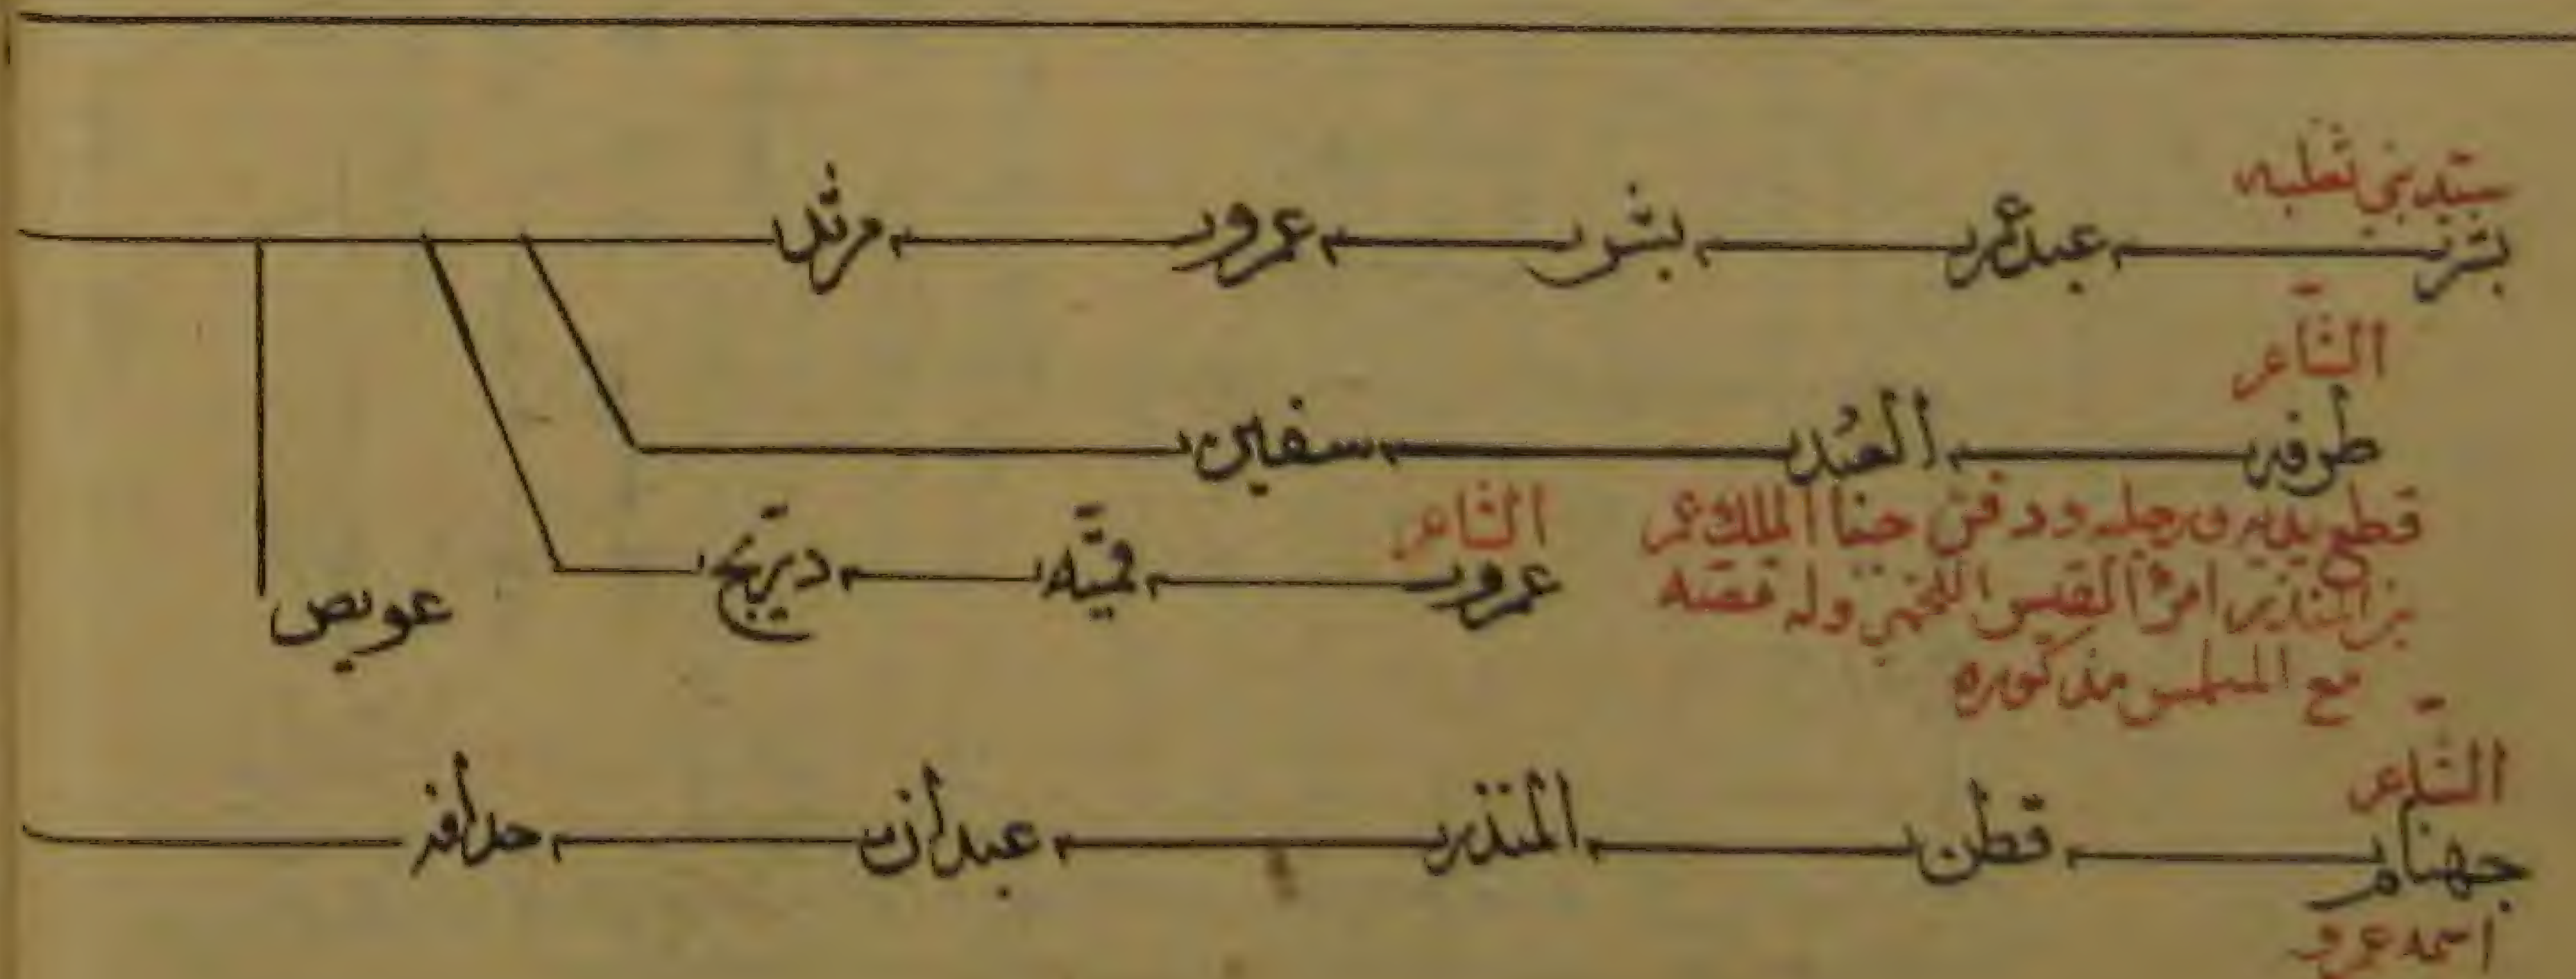 سيد بني ثعلبه
بشر عبد عمر بشر عمرو مرثد
الشاعر
طرفه العبد سفين
قطع يديه ورجليه ودفن حيا الملك عمر
بن المنذر امرئ القيس اللخمي وله قصه
مع المتلمس مذكوره
الشاعر
عمرو قميّه
عويص
الشاعر
جهنام قطن المنذر عبدان حذافه
اسمه عمرو